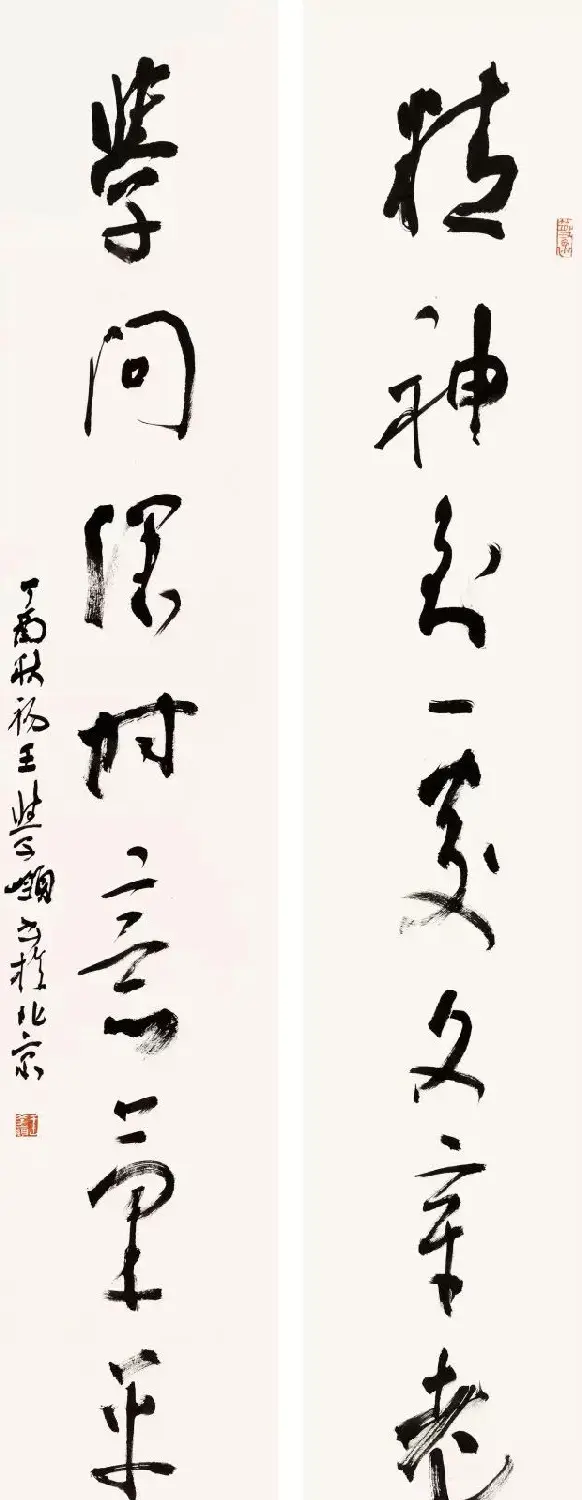 精神到處文章老
學問深時意氣平
丁酉秋 王學嶺書於北京